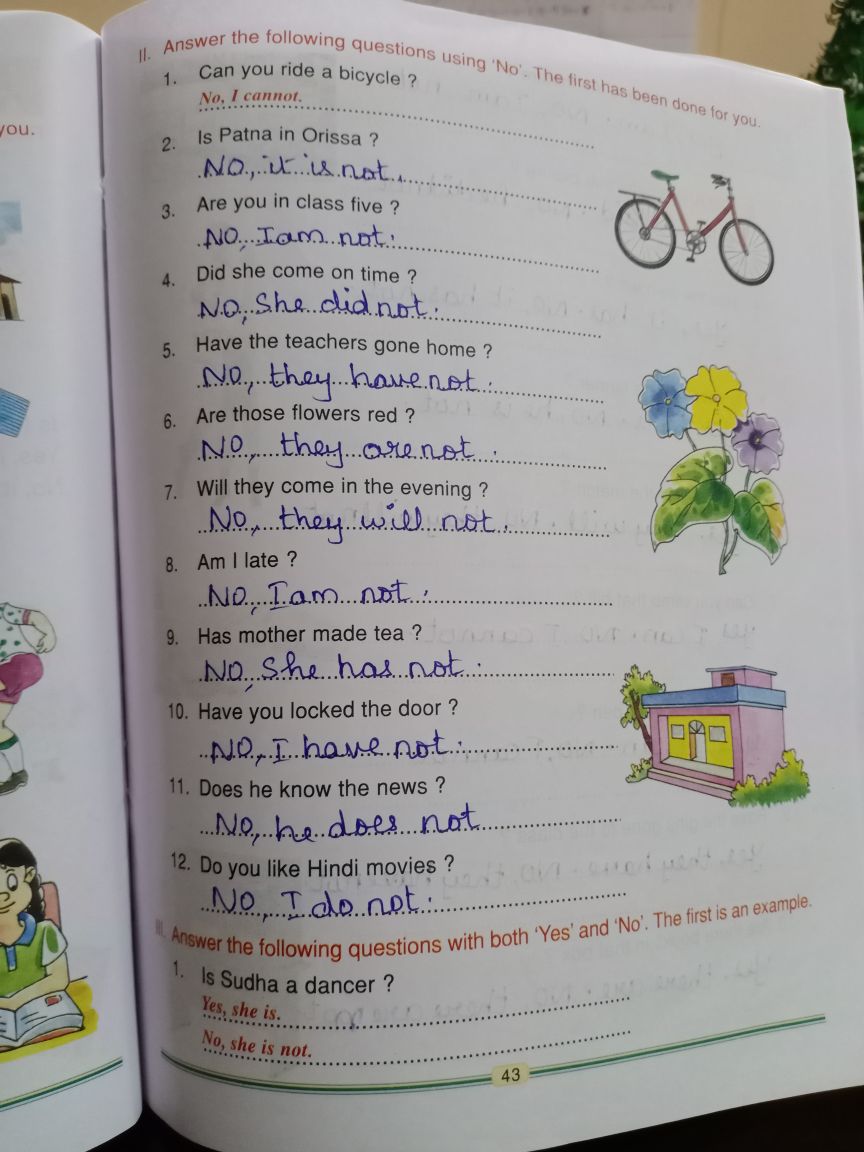 you.
II. Answer the following questions using 'No'. The first has been done for you.
1. Can you ride a bicycle ?
No, I cannot.
2. Is Patna in Orissa ?
NO, it is not.
3. Are you in class five ?
NO, I am not.
4. Did she come on time ?
NO, She did not.
5. Have the teachers gone home ?
NO, they have not.
6. Are those flowers red ?
NO, they are not.
7. Will they come in the evening ?
No, they will not.
8. Am I late ?
NO, I am not.
9. Has mother made tea ?
NO, She has not.
10. Have you locked the door ?
NO, I have not.
11. Does he know the news ?
No, he does not
12. Do you like Hindi movies ?
NO, I do not.
III. Answer the following questions with both 'Yes' and 'No'. The first is an example.
1. Is Sudha a dancer ?
Yes, she is.
No, she is not.
43